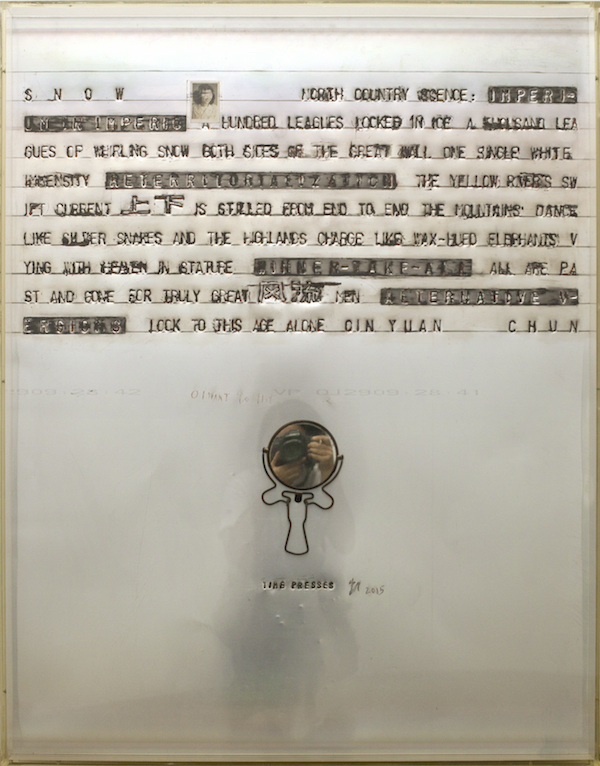 S N O W NORTH COUNTRY SCENE: IMPERI-
UM IN IMPERIO A HUNDRED LEAGUES LOCKED IN ICE A THOUSAND LEA
GUES OF WHIRLING SNOW BOTH SIDES OF THE GREAT WALL ONE SINGLE WHITE
IMMENSITY RETERRITORIALIZATION THE YELLOW RIVER'S SW
IFT CURRENT 上下 IS STILLED FROM END TO END THE MOUNTAINS DANCE
LIKE SILVER SNAKES AND THE HIGHLANDS CHARGE LIKE WAX-HUED ELEPHANTS V
YING WITH HEAVEN IN STATURE WINNER-TAKE-ALL ALL ARE PA
ST AND GONE FOR TRULY GREAT MEN ALTERNATIVE V-
ERSIONS LOOK TO THIS AGE ALONE QIN YUAN CHUN
909-28-42 VP 012909-28-41
TIME PRESSES 2005